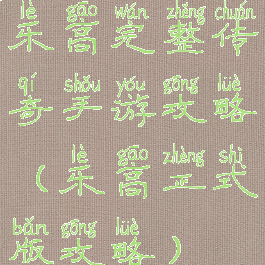 lè gāo wán zhěng chuán
乐高完整传
qí shǒu yóu gōng lüè
奇手游攻略
lè gāo zhèng shì
(乐高正式
bǎn gōng lüè
版攻略)